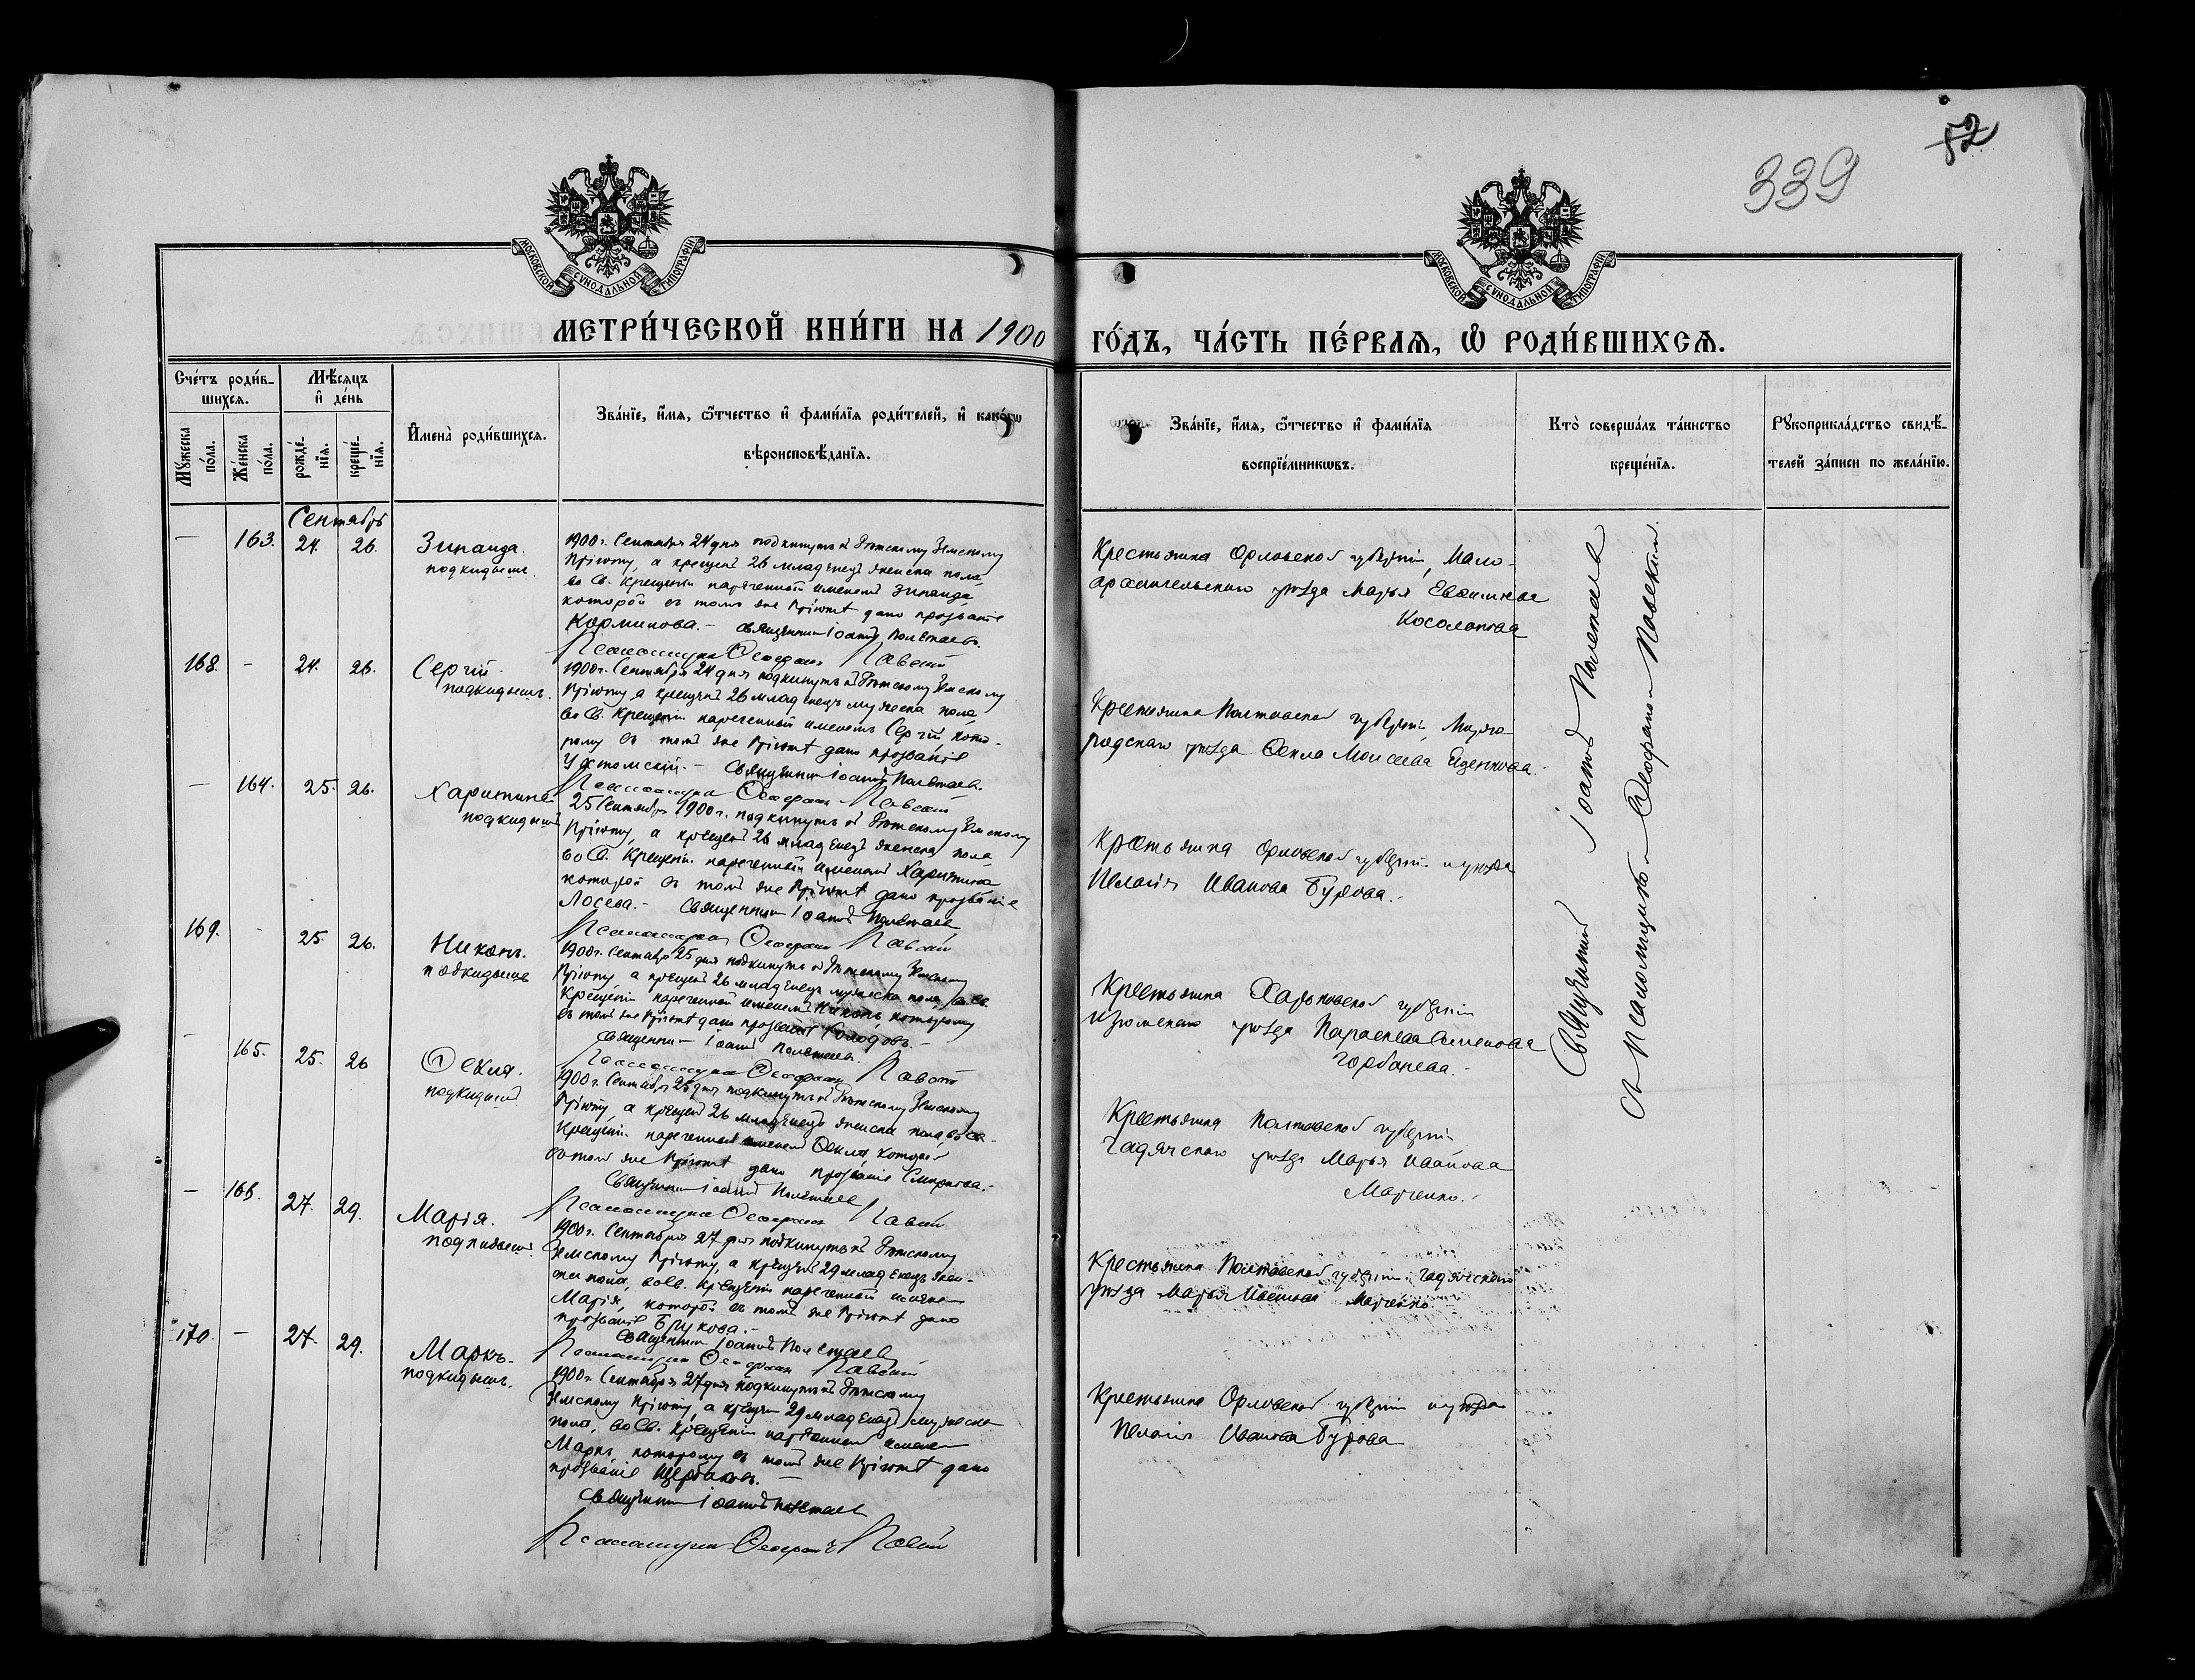 52
339
МОСКОВСКОЙ СУНОДАЛЬНОЙ ТИПОГРАФІИ
МОСКОВСКОЙ СУНОДАЛЬНОЙ ТИПОГРАФІИ
МЕТРИ́ЧЕСКОЙ КНИ́ГИ НА 1900
ГО́ДЪ, ЧА́СТЬ ПЕ́РВАѦ, Ѡ҆ РОДИ́ВШИХСѦ.
Сче́тъ роди́в-
шихсѧ.
Мѣ́сѧцъ
и҆ де́нь
Мꙋ́жеска
по́ла.
Же́нска
по́ла.
рожде́-
нїѧ.
креще́-
нїѧ.
И҆мена̀ роди́вшихсѧ.
Зва́нїе, и҆́мѧ, ѻ҆́тчество и҆ фами́лїѧ роди́телей, и҆ како́гѡ
вѣроисповѣ́данїѧ.
Зва́нїе, и҆́мѧ, ѻ҆́тчество и҆ фами́лїѧ
воспрїе́мникѡвъ.
Кто̀ соверша́лъ та́инство
креще́нїѧ.
Рꙋкоприкла́дство свидѣ́-
телей за́писи по жела́нїю.
Сентябрь
— 163. 24. 26.
Зинаида.
подкидышъ.
1900 г. Сентября 24 дня подкинутъ къ Дѣтскому Земскому
Пріюту, а крещенъ 26 младенецъ женска пола
во Св. Крещеніи нареченный именемъ Зинаида
которой въ томъ же Пріютѣ дано прозваніе
Кормилова. — Священникъ Іоаннъ Полетаевъ.
Псаломщикъ Ѳеофанъ Павскій
Крестьянка Орловской губерніи, Мало-
архангельскаго уѣзда Марья
Косолапова
168. - 24. 26.
Сергій.
подкидышъ.
1900 г. Сентября 24 дня подкинутъ къ Дѣтскому Земскому
Пріюту, а крещенъ 26 младенецъ мужеска пола
во Св. Крещеніи нареченный именемъ Сергій, кото-
рому въ томъ же Пріютѣ дано прозваніе
Устомскій. — Священникъ Іоаннъ Полетаевъ.
Псаломщикъ Ѳеофанъ Павскій
Крестьянка Полтавской губерніи, Мирго-
родскаго уѣзда Ѳекла Моисеева
— 164. 25. 26.
Харитина
подкидышъ
25 Сентября 1900 г. подкинутъ къ Дѣтскому Земскому
Пріюту, а крещенъ 26 младенецъ женска пола
во Св. Крещеніи нареченный именемъ Харитина
которой въ томъ же Пріютѣ дано прозваніе
Лосева. — Священникъ Іоаннъ Полетаевъ
Псаломщикъ Ѳеофанъ Павскій
Крестьянка Орловской губерніи и уѣзда
Пелагія Иванова Бурова. —
169. - 25. 26.
Никонъ.
подкидышъ
1900 г. Сентября 25 дня подкинутъ къ Дѣтскому Земскому
Пріюту, а крещенъ 26 младенецъ мужеска пола, во Св.
Крещеніи нареченный именемъ Никонъ, которому
въ томъ же Пріютѣ дано прозваніе
Священникъ Іоаннъ Полетаевъ.
Псаломщикъ Ѳеофанъ Павскій
Крестьянка Харьковской губерніи
Изюмскаго уѣзда Параскева Семенова
Горбанева. —
- 165. 25. 26
Ѳекла.
подкидышъ.
1900 г. Сентября 25 дня подкинутъ къ Дѣтскому Земскому
Пріюту, а крещенъ 26 младенецъ женска пола, во Св.
Крещеніи нареченный именемъ Ѳекла которой
въ томъ же Пріютѣ дано прозваніе Смирнова. —
Священникъ Іоаннъ Полетаевъ
Псаломщикъ Ѳеофанъ Павскій
Крестьянка Полтавской губерніи
Гадячскаго уѣзда Марья Иванова
Марченко. —
— 166. 27. 29.
Марія.
подкидышъ.
1900 г. Сентября 27 дня подкинутъ къ Дѣтскому
Земскому Пріюту, а крещенъ 29 младенецъ жен-
ска пола, во Св. Крещеніи нареченный именемъ
Марія, которой въ томъ же Пріютѣ дано
прозваніе Брукова. —
Священникъ Іоаннъ Полетаевъ
Псаломщикъ Ѳеофанъ Павскій
Крестьянка Полтавской губерніи Гадячскаго
уѣзда Марья Иванова Марченко.
170. — 27. 29.
Маркъ.
подкидышъ.
1900 г. Сентября 27 дня подкинутъ къ Дѣтскому
Земскому Пріюту, а крещенъ 29 младенецъ мужеска
пола, во Св. Крещеніи нареченный именемъ
Маркъ, которому въ томъ же Пріютѣ дано
прозваніе Щербаковъ. —
Священникъ Іоаннъ Полетаевъ
Псаломщикъ Ѳеофанъ Павскій
Крестьянка Орловской губерніи и уѣзда
Пелагія Иванова Бурова
Священникъ Іоаннъ Полетаевъ
Съ Псаломщикомъ Ѳеофаномъ Павскимъ